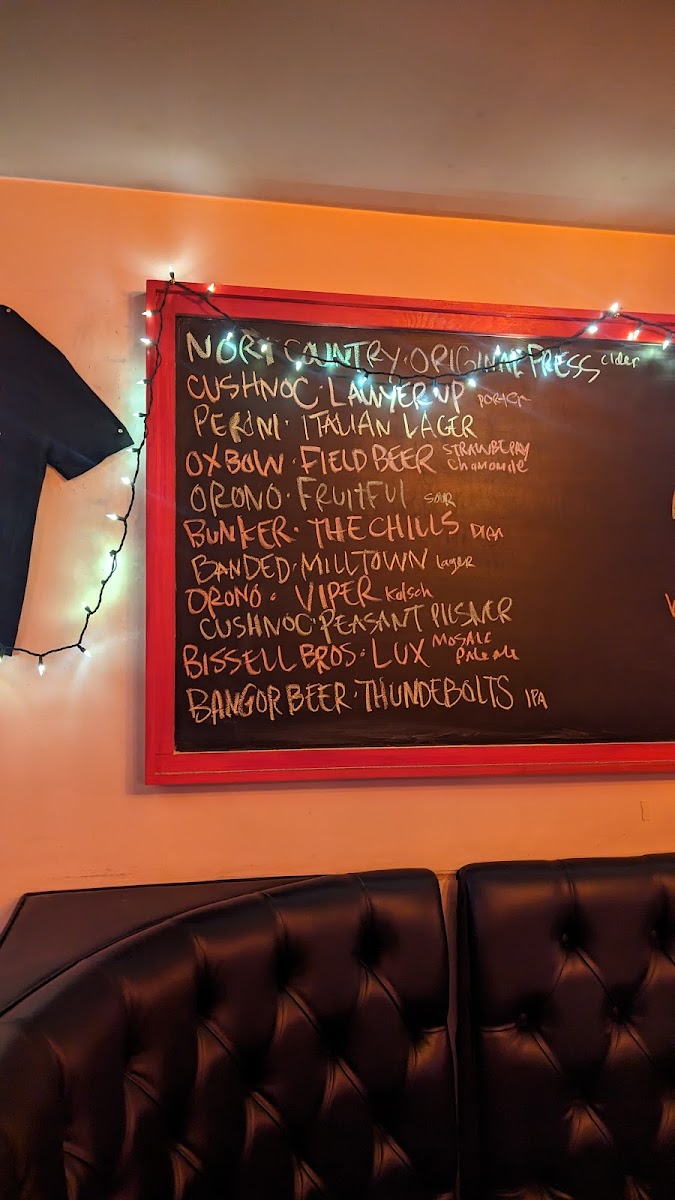 NORT COUNTRY · ORIGINAL PRESS cider
CUSHNOC · LAWYER UP PORTER
PERONI · ITALIAN LAGER
OXBOW · FIELD BEER STRAWBERRY
Chamomile
ORONO · FRUITFUL SOUR
BUNKER · THE CHILLS DIPA
BANDED · MILLTOWN lager
ORONO · VIPER Kolsch
CUSHNOC · PEASANT PILSNER
BISSELL BROS · LUX MOSAIC
Pale ale
BANGOR BEER · THUNDEBOLTS IPA